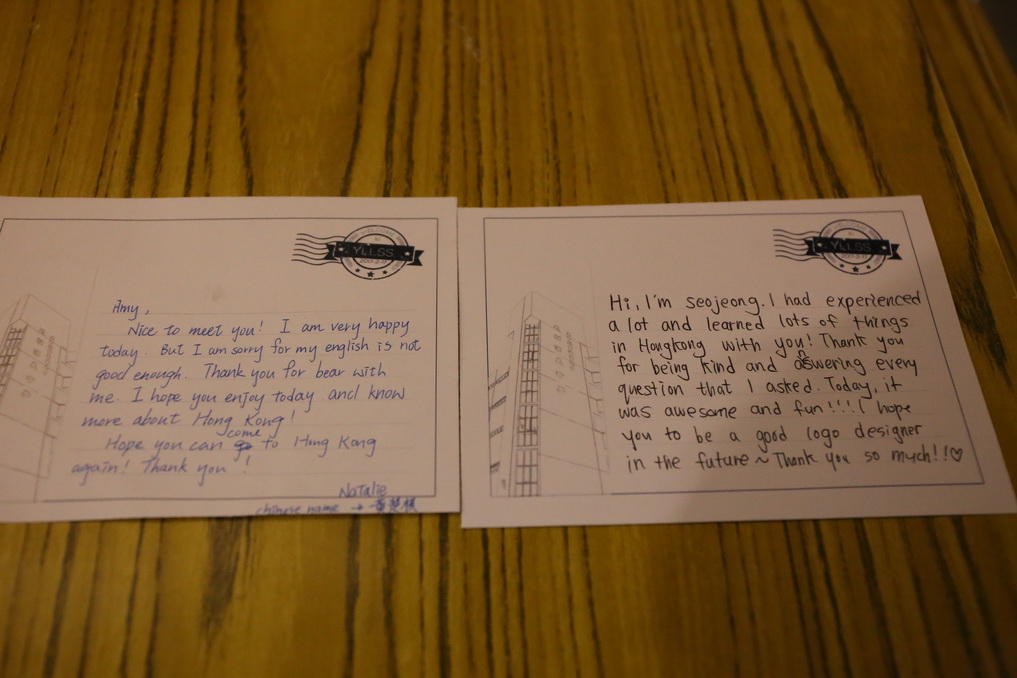 YLLSS
Amy,
Nice to meet you! I am very happy
today. But I am sorry for my english is not
good enough. Thank you for bear with
me. I hope you enjoy today and know
more about Hong Kong!
Hope you can go come to Hong Kong
again! Thank you!
Natalie
chinese name →
YLLSS
Hi, I'm seojeong. I had experienced
a lot and learned lots of things
in Hongkong with you! Thank you
for being kind and answering every
question that I asked. Today, it
was awesome and fun!!!! I hope
you to be a good logo designer
in the future ~ Thank you so much!!♡